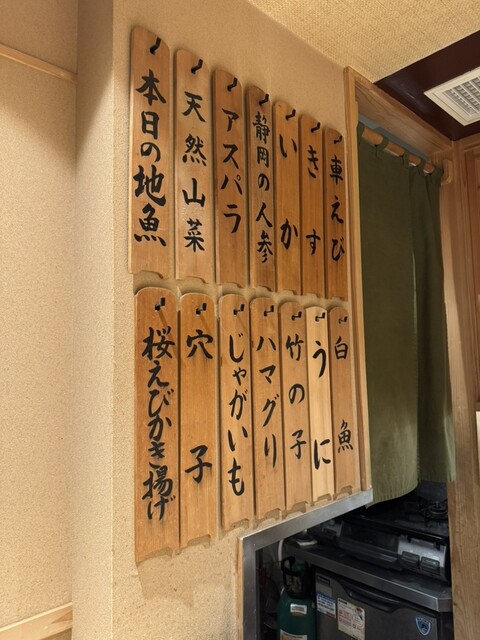 車えび
きす
いか
静岡の人参
アスパラ
天然山菜
本日の地魚
白魚
うに
竹の子
ハマグリ
じゃがいも
穴子
桜えびかき揚げ